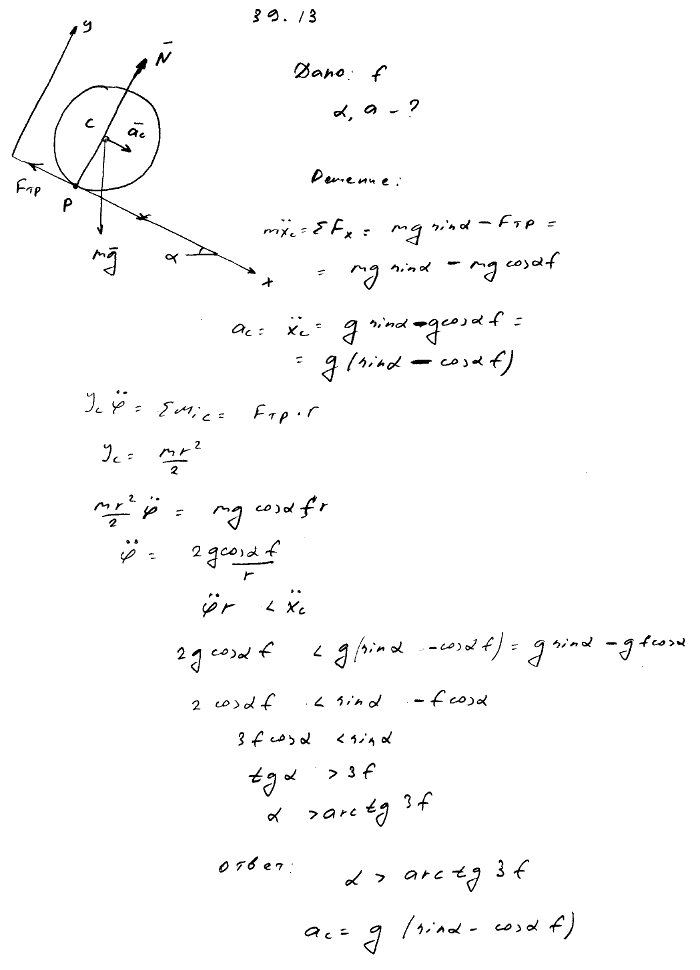 39.13
y
N̄
Дано: f
α, a - ?
C
āc
Решение:
Fтр
P
mẍc = ΣFx = mg sinα - Fтр =
mḡ
α
x
= mg sinα - mg cosαf
ac = ẍc = g sinα - g cosαf =
= g(sinα - cosαf)
Jcφ̈ = Σmic = Fтр·r
Jc = mr²/2
mr²/2 φ̈ = mg cosαfr
φ̈ = 2g cosαf/r
φ̈r < ẍc
2g cosαf < g(sinα - cosαf) = g sinα - gf cosα
2 cosαf < sinα - f cosα
3f cosα < sinα
tgα > 3f
α > arctg 3f
Ответ: α > arctg 3f
ac = g (sinα - cosαf)